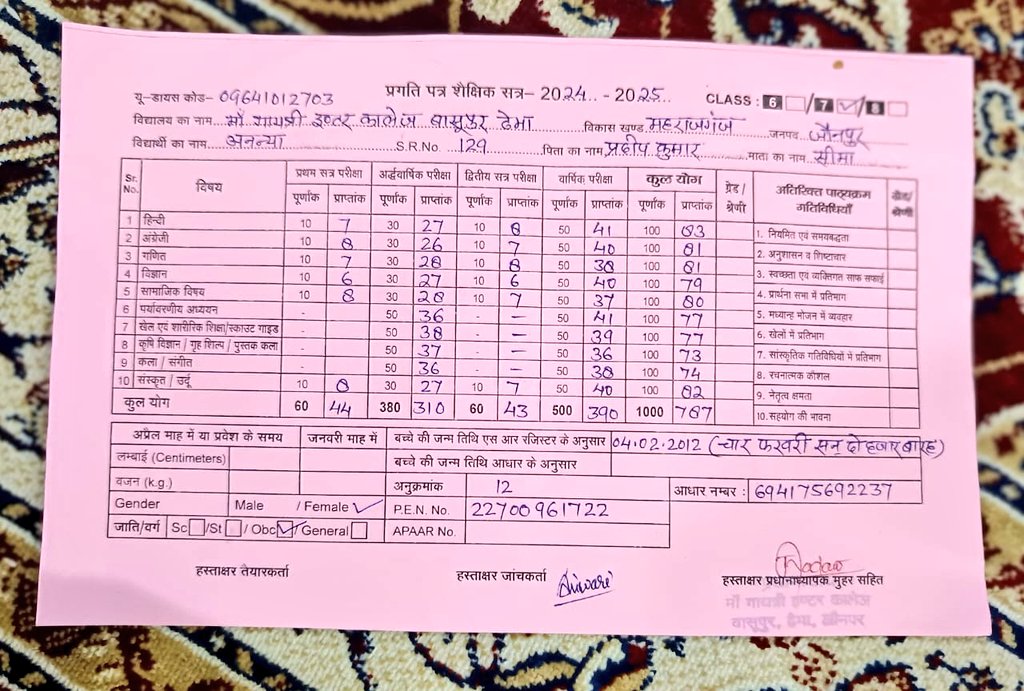 प्रगति पत्र शैक्षिक सत्र– 2024.. - 2025..
यू–डायस कोड– 09641012703 CLASS : 6 7 ✓ 8
विद्यालय का नाम.. माँ गायत्री इण्टर कालेज बासूपुर देमा... विकास खण्ड महराजगंज जनपद जौनपुर
विद्यार्थी का नाम.. अनन्या S.R.No. 129 पिता का नाम प्रदीप कुमार माता का नाम सीमा
Sr. No. विषय प्रथम सत्र परीक्षा अर्द्धवार्षिक परीक्षा द्वितीय सत्र परीक्षा वार्षिक परीक्षा कुल योग ग्रेड / श्रेणी अतिरिक्त पाठ्यक्रम गतिविधियाँ ग्रेड/ श्रेणी
पूर्णांक प्राप्तांक पूर्णांक प्राप्तांक पूर्णांक प्राप्तांक पूर्णांक प्राप्तांक पूर्णांक प्राप्तांक
1 हिन्दी 10 7 30 27 10 8 50 41 100 83 1. नियमित एवं समयबद्धता
2 अंग्रेजी 10 8 30 26 10 7 50 40 100 81 2. अनुशासन व शिष्टाचार
3 गणित 10 7 30 28 10 8 50 38 100 81 3. स्वच्छता एवं व्यक्तिगत साफ सफाई
4 विज्ञान 10 6 30 27 10 6 50 40 100 79 4. प्रार्थना सभा में प्रतिभाग
5 सामाजिक विषय 10 8 30 28 10 7 50 37 100 80 5. मध्यान्ह भोजन में व्यवहार
6 पर्यावरणीय अध्ययन - 50 36 - – 50 41 100 77 6. खेलों में प्रतिभाग
7 खेल एवं शारीरिक शिक्षा/स्काउट गाइड - 50 38 - – 50 39 100 77 7. सांस्कृतिक गतिविधियों में प्रतिभाग
8 कृषि विज्ञान / गृह शिल्प / पुस्तक कला - 50 37 - – 50 36 100 73 8. रचनात्मक कौशल
9 कला / संगीत - 50 36 - – 50 38 100 74 9. नेतृत्व क्षमता
10 संस्कृत / उर्दू 10 8 30 27 10 7 50 40 100 82 10. सहयोग की भावना
कुल योग 60 44 380 310 60 43 500 390 1000 787
अप्रैल माह में या प्रवेश के समय जनवरी माह में बच्चे की जन्म तिथि एस आर रजिस्टर के अनुसार 04.02.2012 (चार फरवरी सन दो हजार बारह)
लम्बाई (Centimeters) बच्चे की जन्म तिथि आधार के अनुसार
वजन (k.g.) अनुक्रमांक 12 आधार नम्बर : 694175692237
Gender Male / Female ✓ P.E.N. No. 22700961722
जाति/वर्ग Sc /St / Obc ✓ / General APAAR No.
हस्ताक्षर तैयारकर्ता हस्ताक्षर जांचकर्ता हस्ताक्षर प्रधानाध्यापक मुहर सहित
माँ गायत्री इण्टर कालेज
वासूपुर, देमा, जौनपुर